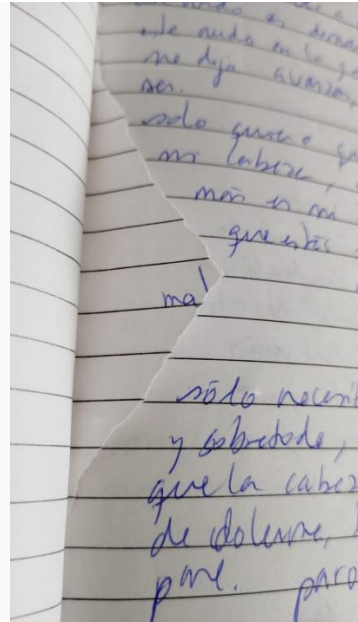 este nudo en la
me deja avanzar
ser.
solo quiero
mi cabeza,
más en mi
que estás
mal
sólo necesi
y sobretodo,
que la cabez
de dolerme,
pare. paro